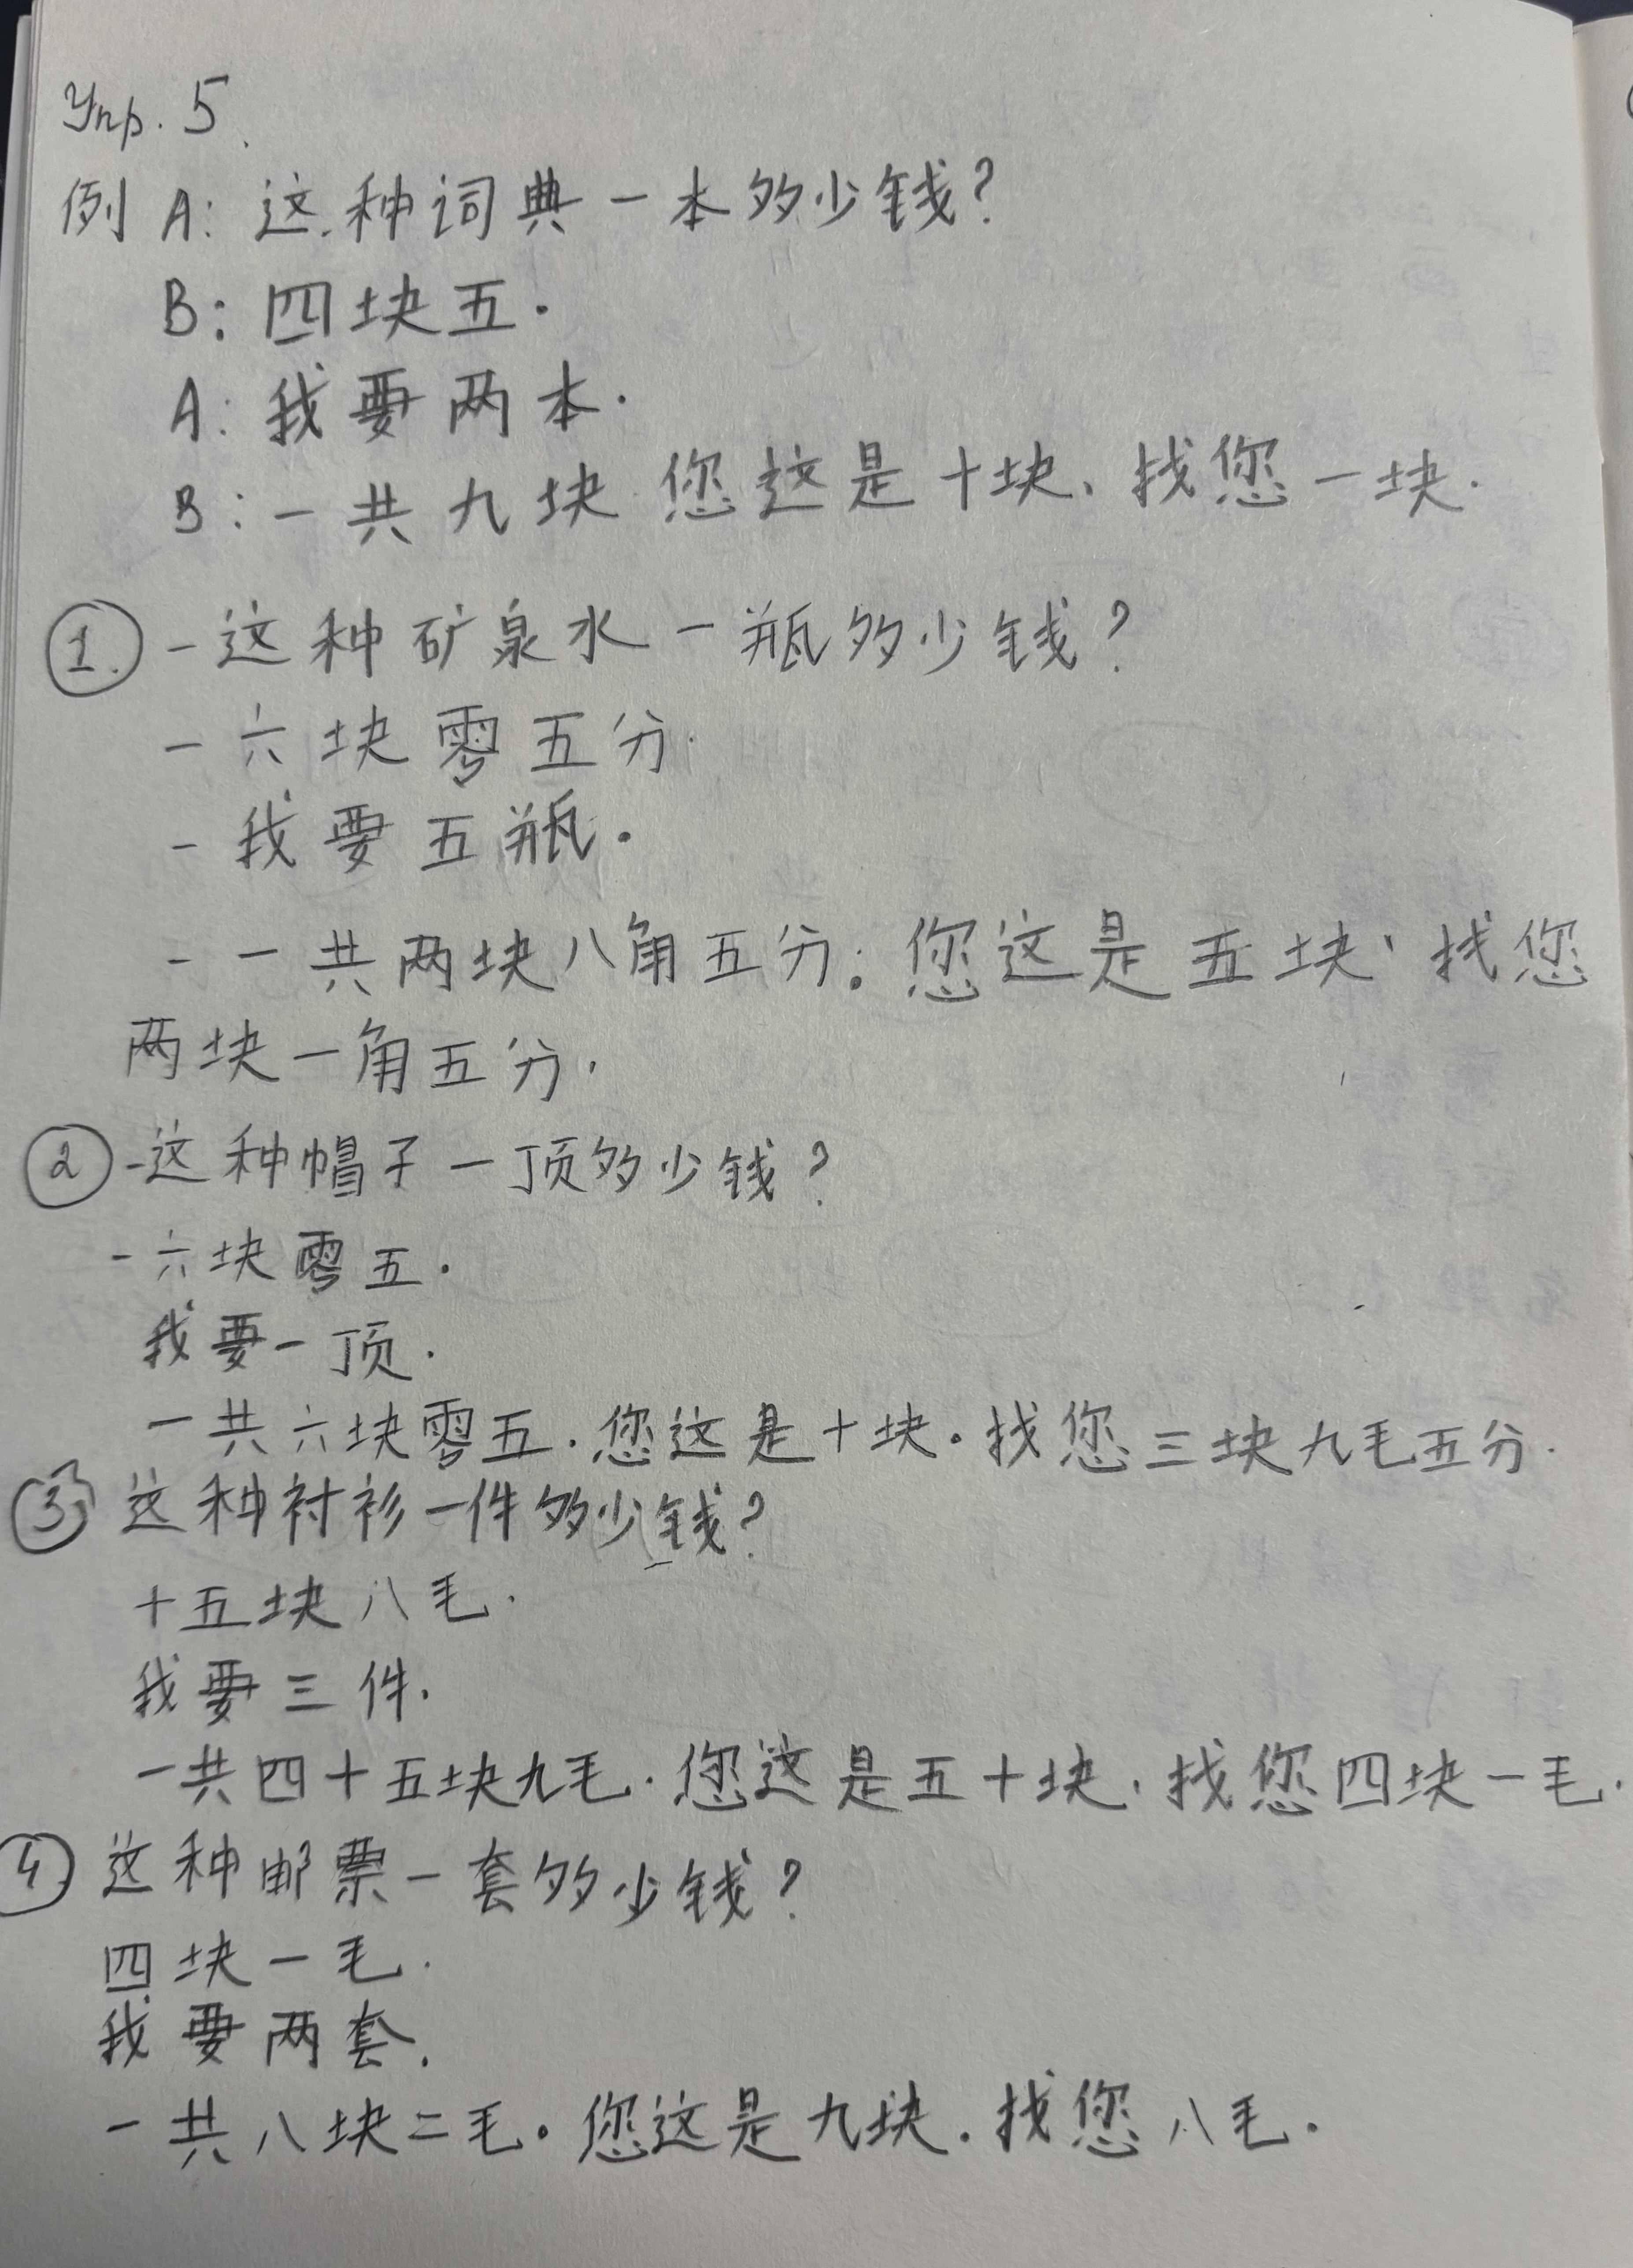 Упр. 5.
例 A: 这种词典一本多少钱?
B: 四块五.
A: 我要两本.
B: 一共九块.您这是十块、找您一块.
1. - 这种矿泉水一瓶多少钱?
- 六块零五分.
- 我要五瓶.
- 一共两块八角五分.您这是五块、找您
两块一角五分.
2 - 这种帽子一顶多少钱?
- 六块零五.
我要一顶.
一共六块零五.您这是十块.找您三块九毛五分.
3 这种衬衫一件多少钱?
十五块八毛.
我要三件.
一共四十五块九毛.您这是五十块、找您四块一毛.
4. 这种邮票一套多少钱?
四块一毛.
我要两套.
一共八块二毛.您这是九块.找您八毛.